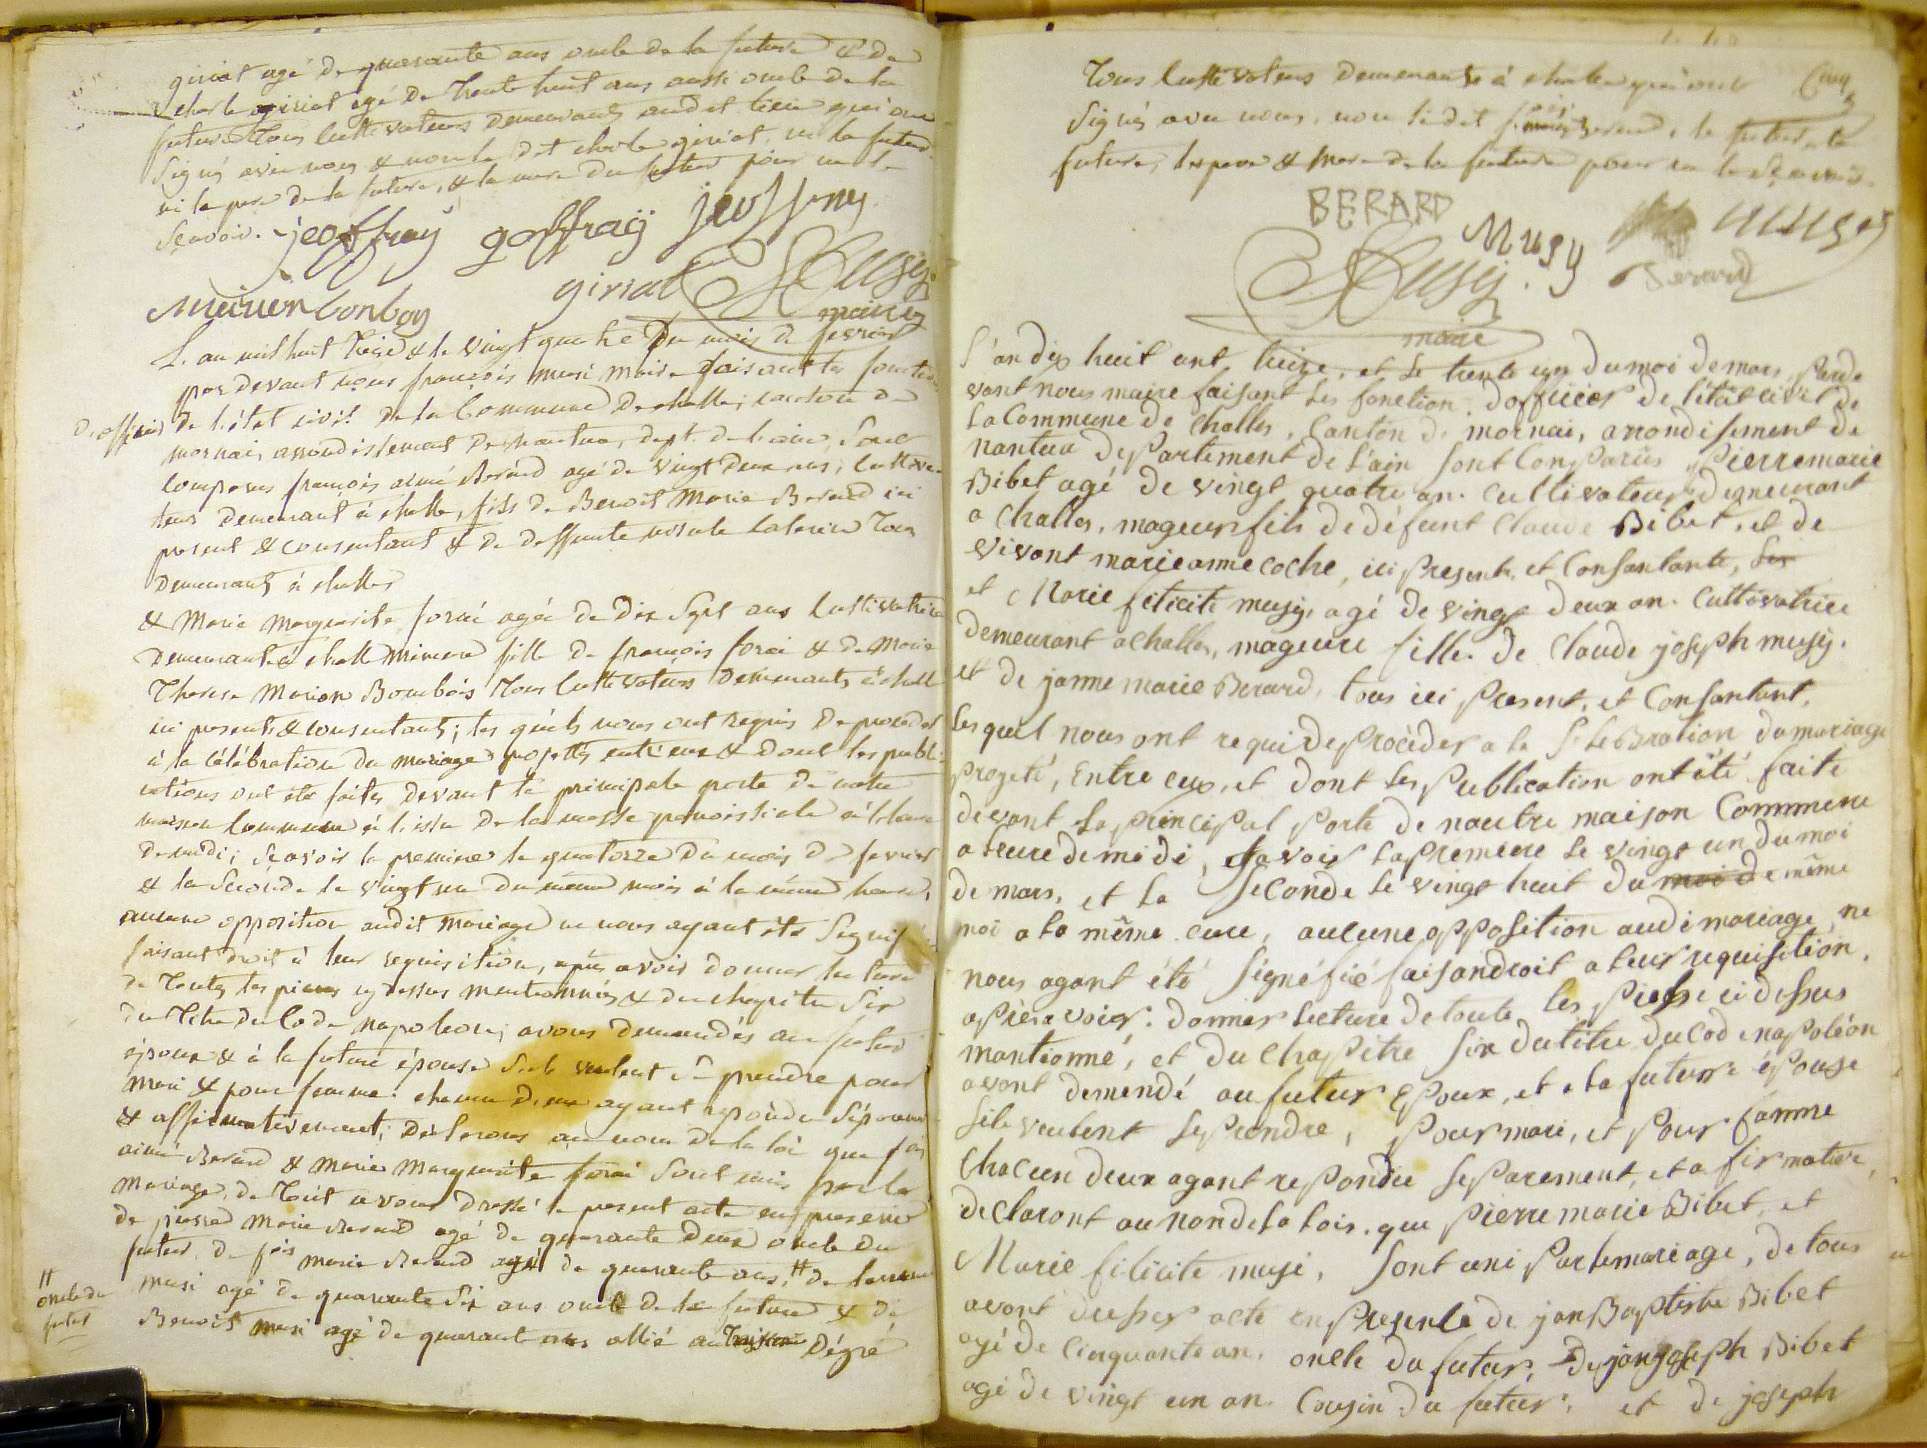 giriat agé de quarante ans oncle de la future & de
charle giriat agé de trente huit ans aussi oncle de la
future tous cultivateurs demeurants audit lieu qui ont
signés avec nous & non le dit charle giriat, ni la future
ni le pere de la future, & la mere du futur pour ne le
sçavoir. jeoffray goffraÿ
giriat Musy
maire
L'an mil huit treize & le vingt quatre du mois de fevrier
par devant nous françois musi maire faisant les fonctions
d'officier de l'état civil de la Commune de challe, canton de
mornai, arrondissement de nantua, dept. de l'ain, sont
comparus françois aimé Berard agé de vingt deux ans, cultiva-
teur demeurant à challe, fils de Benoit Marie Berard ici
present & consentant & de deffunte ursule tous
demeurants à challes
& Marie Marguerite forai agée de dix sept ans cultivatrice
demeurante à challe mineure fille de françois forai & de Marie
Therese Marion Bombois tous cultivateurs demeurants à challe
ici presents & consentants; les quels nous ont requis de proceder
à la célébration du mariage projetté entr'eux & dont les publi-
cations ont été faites devant la principale porte de notre
maison commune à l'issu de la messe paroissiale à l'heure
de midi; sçavoir la premiere le quatorze du mois de fevrier
& la seconde le vingt un du même mois à la même heure,
aucune opposition audit mariage ne nous ayant été signifiée
faisant droit à leur requisition, après avoir donner lecture
de toutes les pieces cy dessus mentionnées & du chapitre six
du titre du Code napoleon, avons demandés au futur
époux & à la future épouse s'ils veulent se prendre pour
mari & pour femme. chacun d'eux ayant repondu séparement
& affirmativement; déclarons au nom de la loi que fois
aimé Berard & Marie Marguerite forai sont unis par le
Mariage, de tout ce avons dressé le present acte en presence
de pierre Marie Berard agé de quarante deux oncle du
futur, de fois marie Berard agé de quarante ans, # de
# oncle du
futur
musi agé de quarante six ans oncle de la future & de
Benoit musi agé de quarant ans allié au troisieme Dégré
Cinq
Tous cultivateurs demeurants à challe qui ont
signés avec nous, non ledit Berard, le futur, la
future, les pere & mere de la future pour ne le sçavoir.
BERARD Musy
Musy. Berard
maire
L'an dix huit ant treize, et le trente un du moi de mars, parde
vant nous maire faisant les fonction d'officier de l'état civil de
la Commune de challes, Canton de mornai, arrondisement de
nantua departement de l'ain sont Conparus Pierre marie
Bibet agé de vingt quatre an. cultivateur demeurant
a challes, mageur fils de défunt Claude Bibet, et de
vivant marie anne coche, ici presente et Consantante,
et Marie felicite musy, agé de vingt deux an. cultivatrice
demeurant a challes, mageure fille de Claude joseph musy.
et de janne marie Berard, tous ici present, et Consantant.
Lesquel nous ont requi de procéder a la Selebration du mariage
progeté, entre eux, et dont les publication ont été faite
devant la principal porte de nautre maison Commune
a leure de midi, savoir la premiere le vingt un du moi
de mars, et la seconde le vingt huit du moi de même
moi a la même eure, aucune opposition audi mariage ne
nous ayant été signéfié faisandroit a leur requisition,
aprèsavoir donner lecture de toute les piesse ci dessus
mantionné, et du chapitre six du titre du Code napoléon
avont demendé au futur Epoux, et a la future épouse
sile veulent se prendre, pour mari, et pour famme
chacun deux ayant repondu separement, et a firmative,
declaront au nondela lois. que Pierre marie Bibet, et
Marie filicite musi, sont uni par le mariage, de tous
avont dresser acte en presence de jan Baptiste Bibet
agé de cinquante an. oncle du futur, De jan joseph Bibet
agé de vingt un an. Cousin du futur, et de joseph